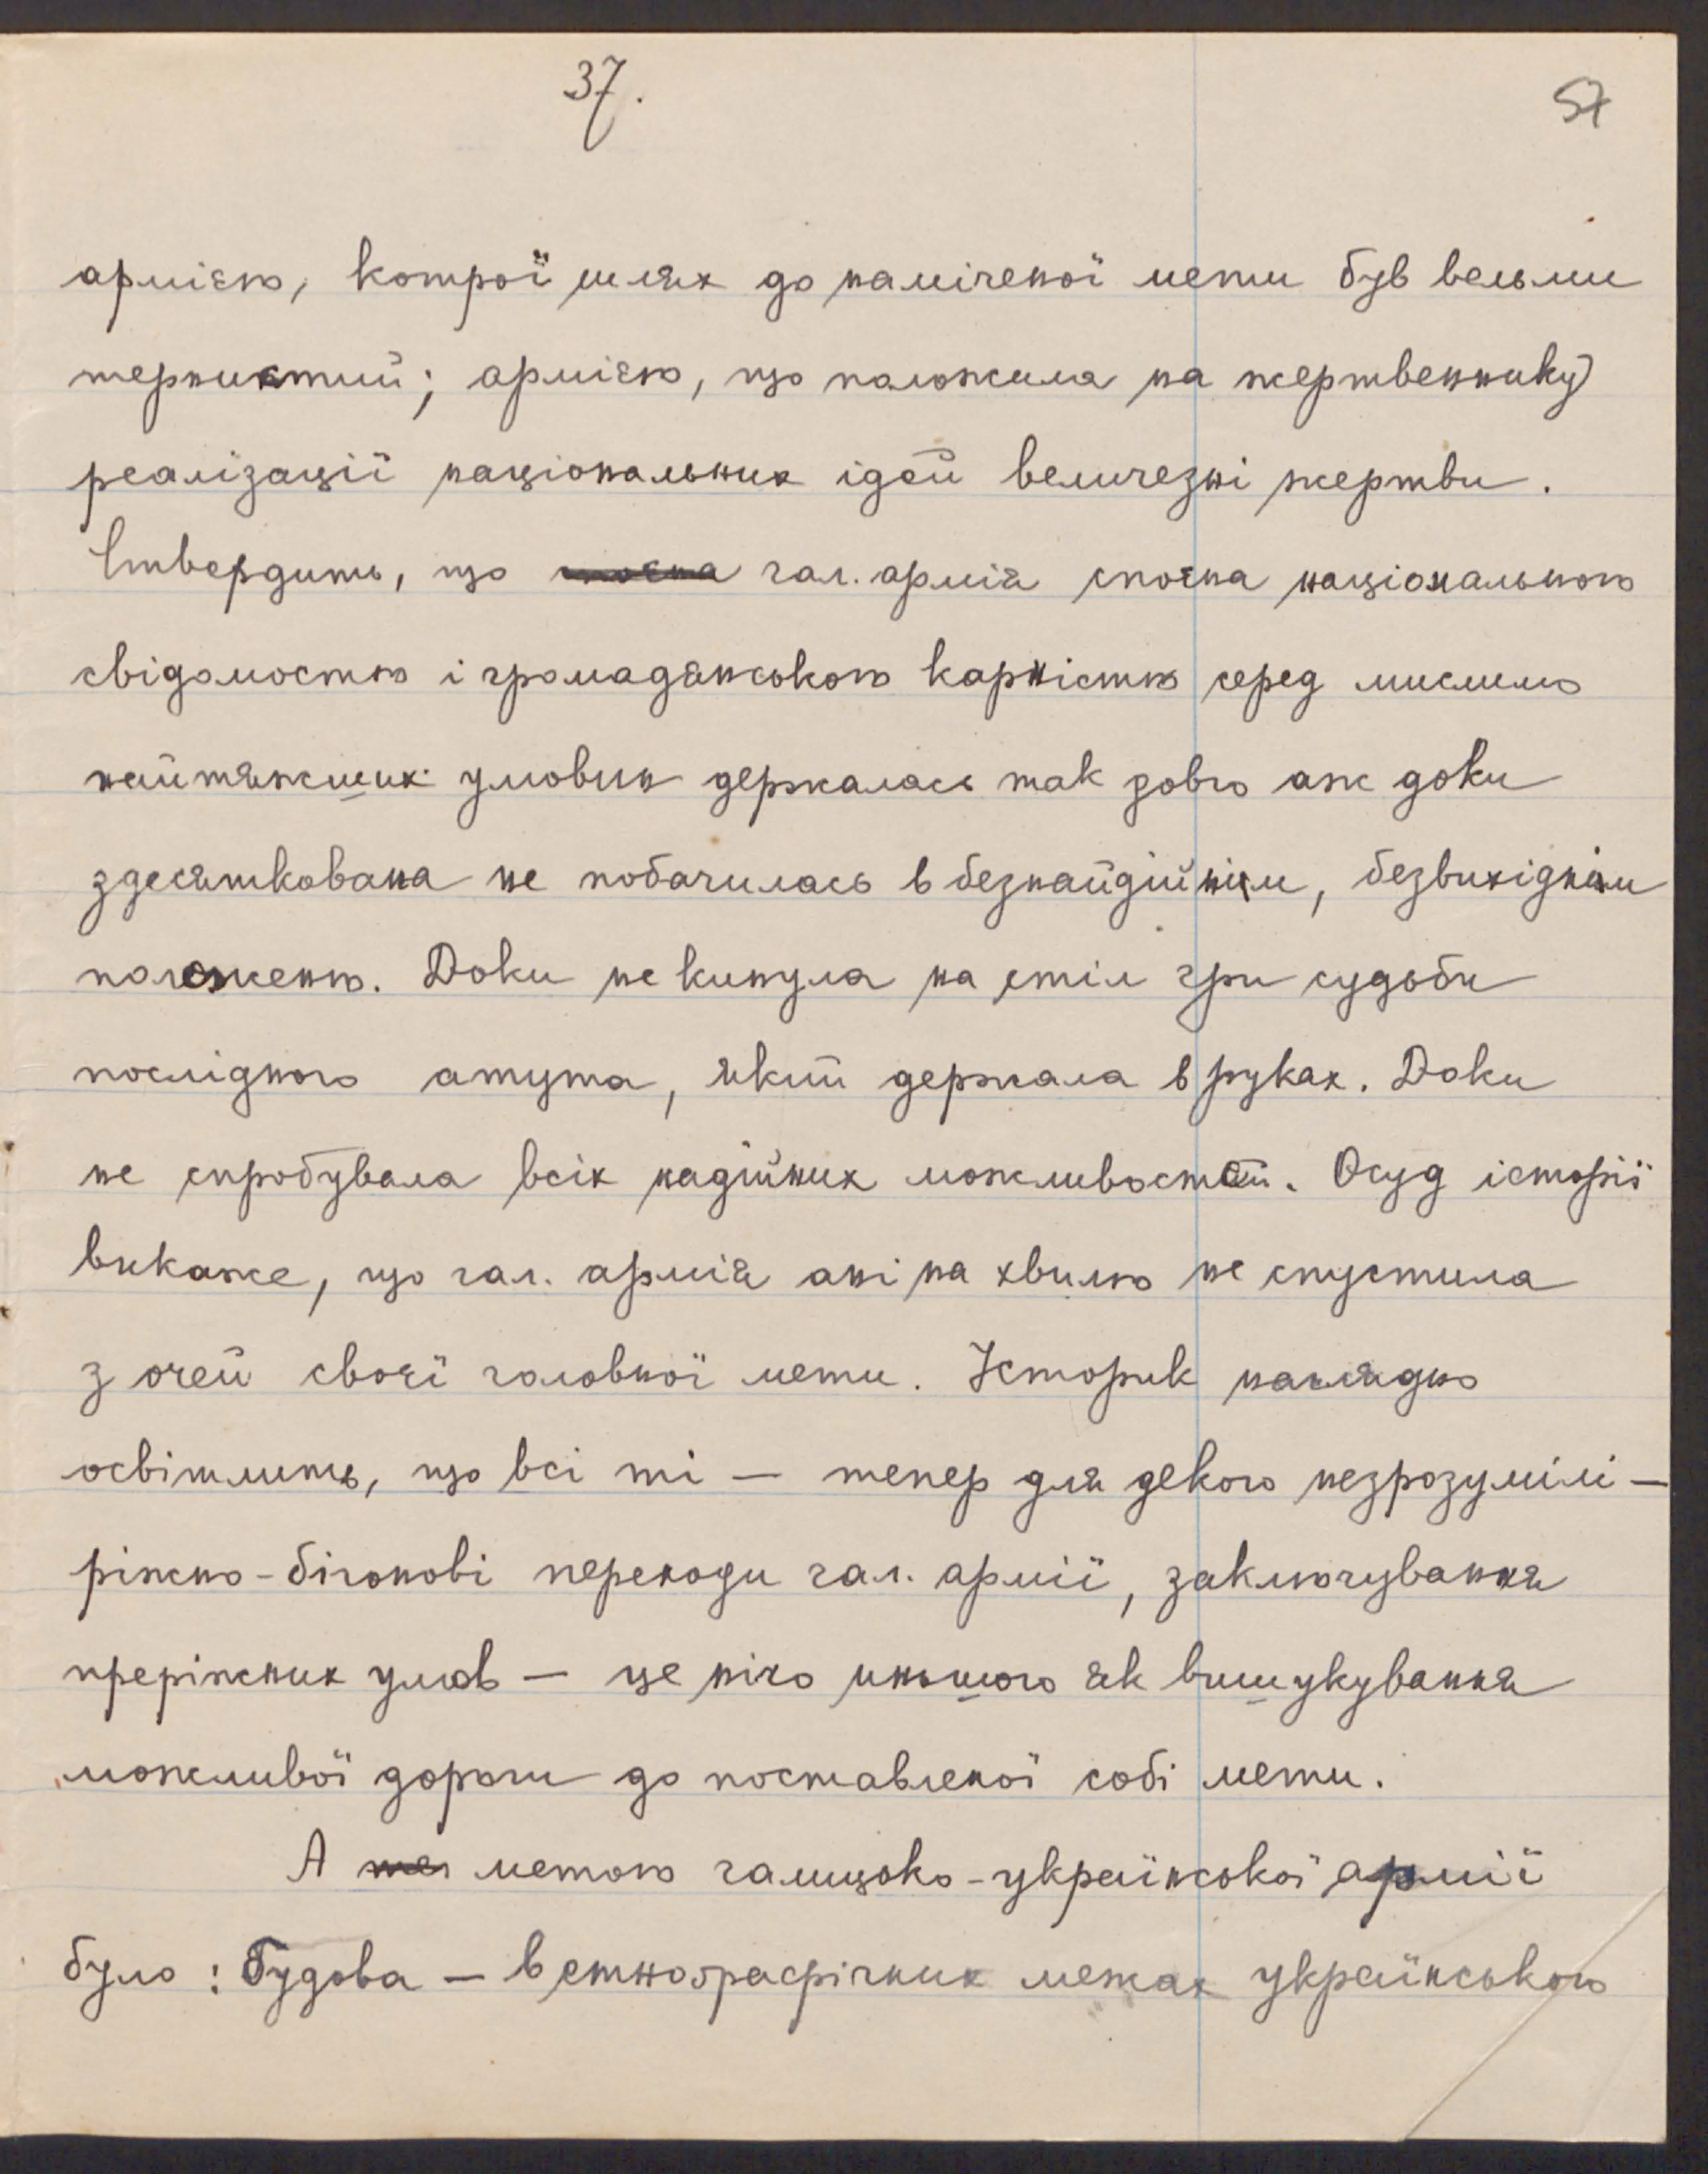 37.
57
армією, котрої шлях до наміченої мети був вельми
тернистий; армією, що положила на жертвеннику
реалізації національних ідей величезні жертви.
Ствердить, що споєна гал. армія споєна національною
свідомостю і громадянською карністю серед мислимо
найтяжших умовин держалась так довго аж доки
здесяткована не побачилась в безнайдійнім, безвихіднім
положеню. Доки не кинула на стіл гри судьби
послідного атута, який держала в руках. Доки
не спробувала всіх надійних можливостей. Осуд історії
викаже, що гал. армія ані на хвилю не спустила
з очей своєї головної мети. Історик наглядно
освітлить, що всі ті — тепер для декого незрозумілі —
ріжно-бігонові переходи гал. армії, заключування
преріжних умов — це нічо иньшого як вишукування
можливої дороги до поставленої собі мети.
А метою галицько-української армії
було: Будова — в етноґрафічних межах українського